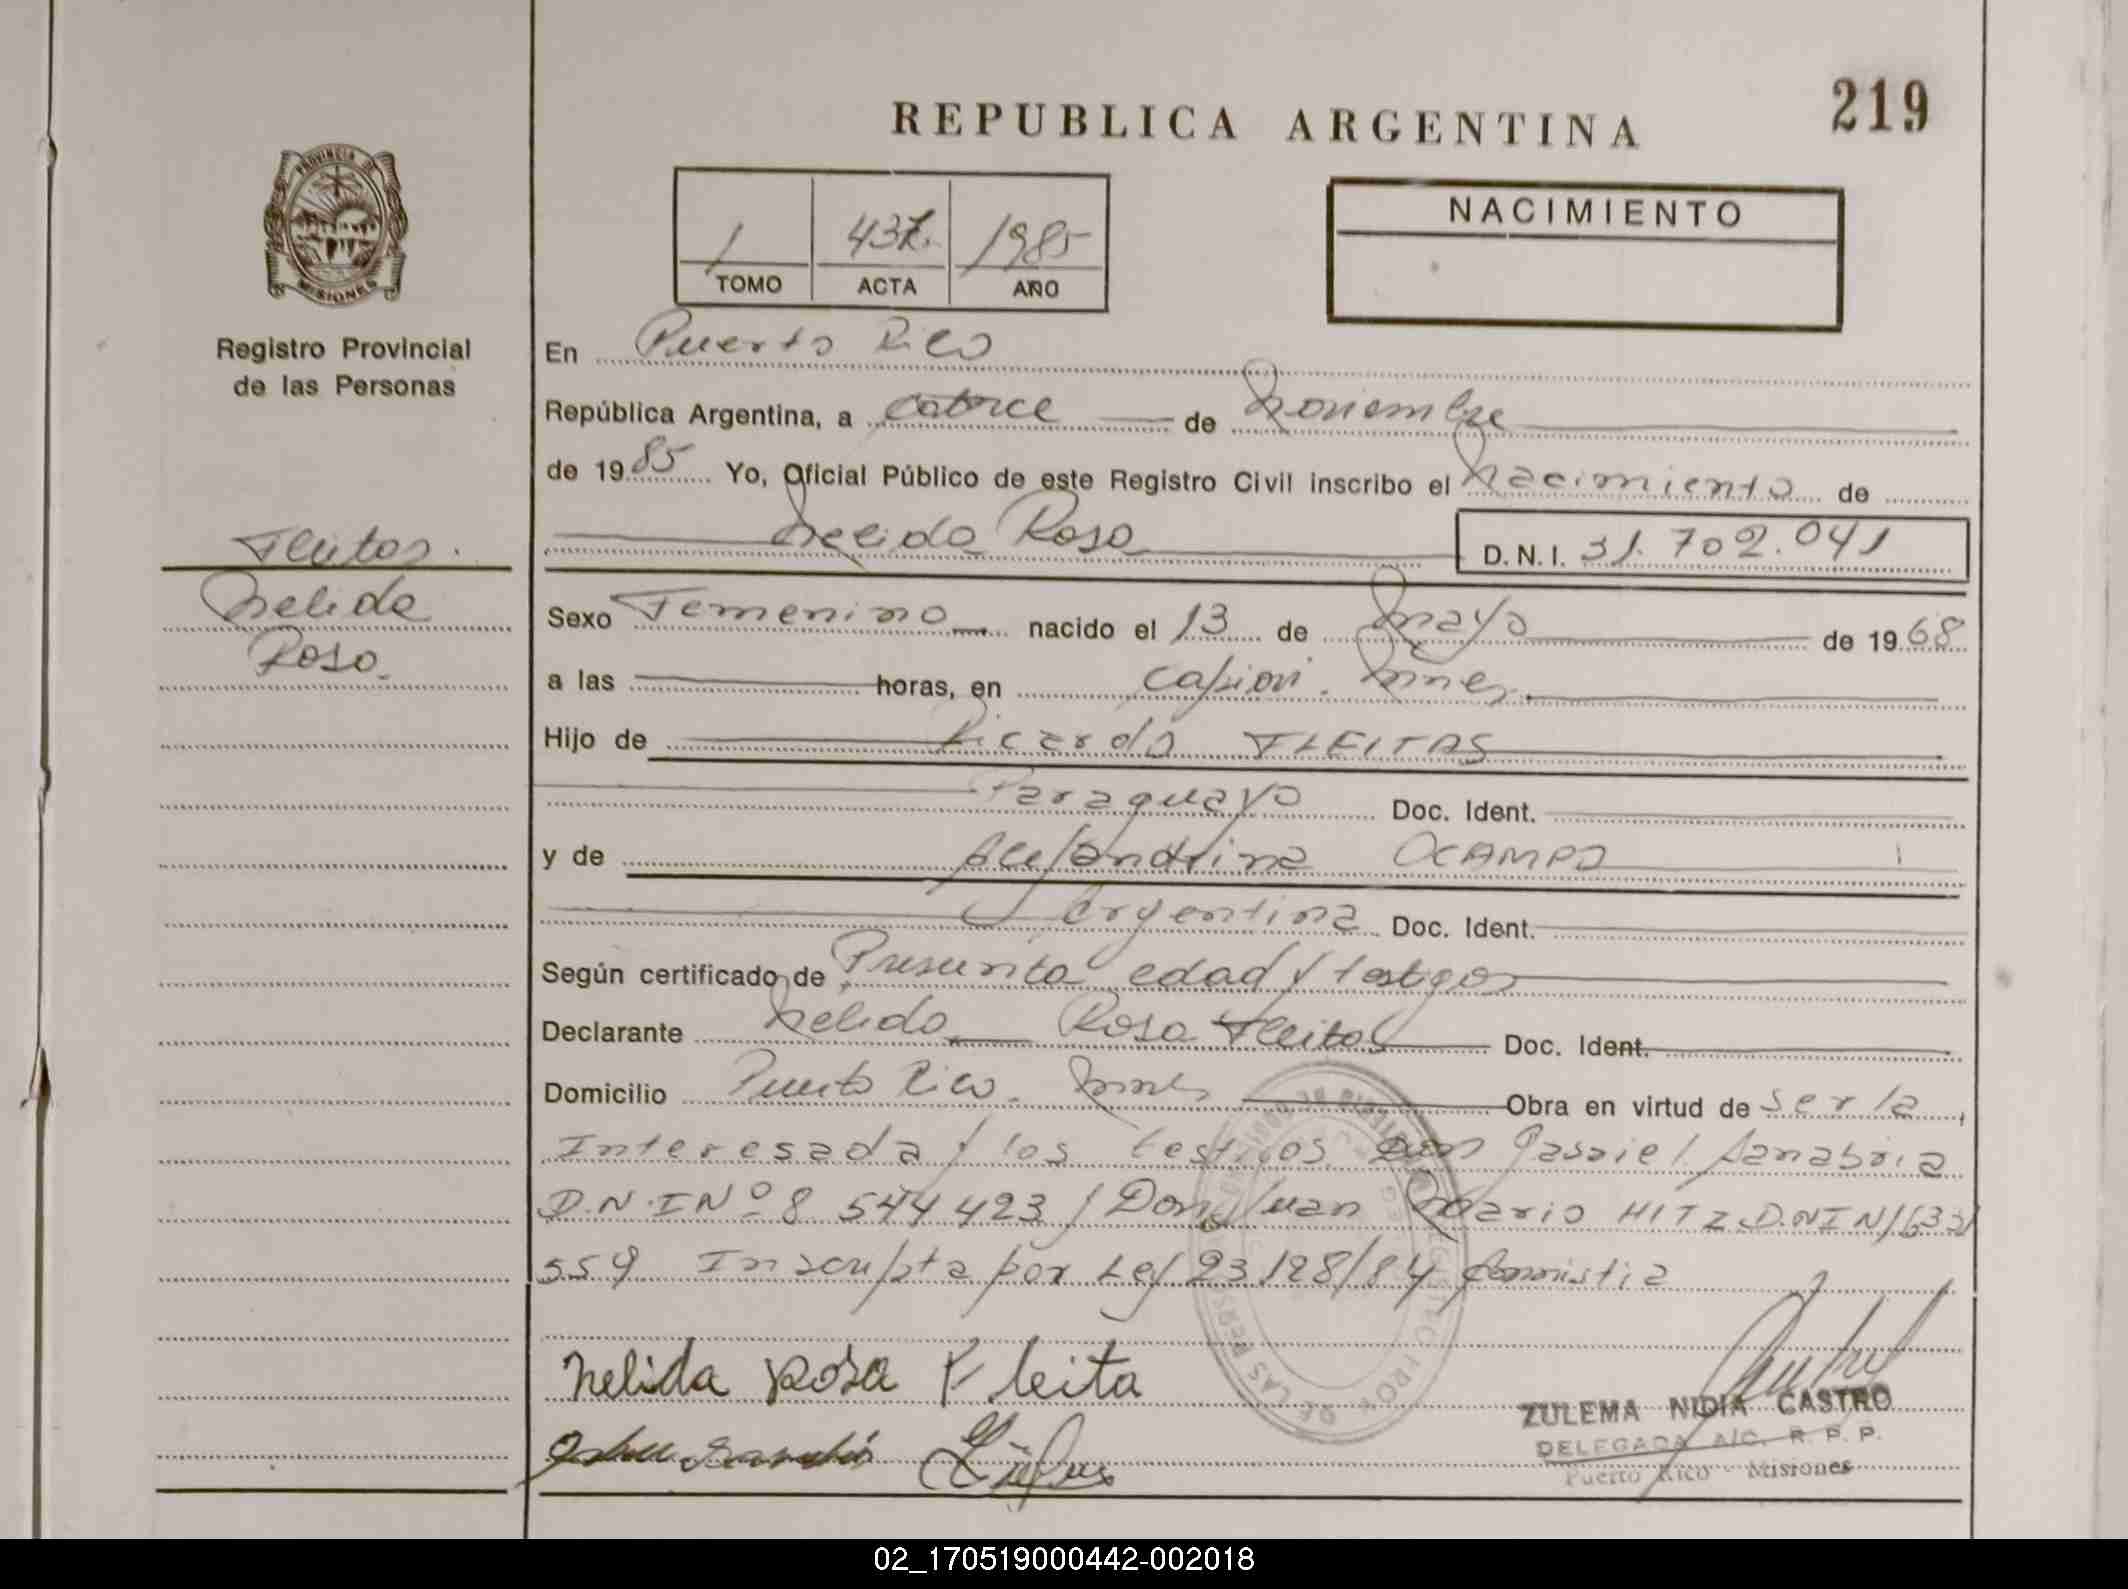 219
REPUBLICA ARGENTINA
PROVINCIA DE
MISIONES
1 437. 1985
TOMO ACTA AÑO
NACIMIENTO
Registro Provincial
de las Personas
En Puerto Rico
República Argentina, a catorce de Noviembre
de 1985 Yo, Oficial Público de este Registro Civil inscribo el Nacimiento de
Nelida Rosa D.N.I. 31.702.041
Fleitas.
Nelida
Rosa.
Sexo Femenino nacido el 13 de Mayo de 1968
a las horas, en Capiovi. Mnes.
Hijo de Ricardo FLEITAS
Paraguayo Doc. Ident.
y de Alejandrina OCAMPO
Argentina Doc. Ident.
Según certificado de Presunta edad y testigos
Declarante Nelida Rosa Fleitas Doc. Ident.
Domicilio Puerto Rico. Mnes Obra en virtud de ser la
Interesada y los testigos Don Sanabria
D.N.I Nº 8 544 423 y Don Juan Mario HITZ D.NI N
559 Inscripta por Ley 23128/84 Amnistia
Nelida Rosa Fleita
ZULEMA NIDIA CASTRO
DELEGADA A/C. R. P. P.
Puerto Rico - Misiones
02_170519000442-002018